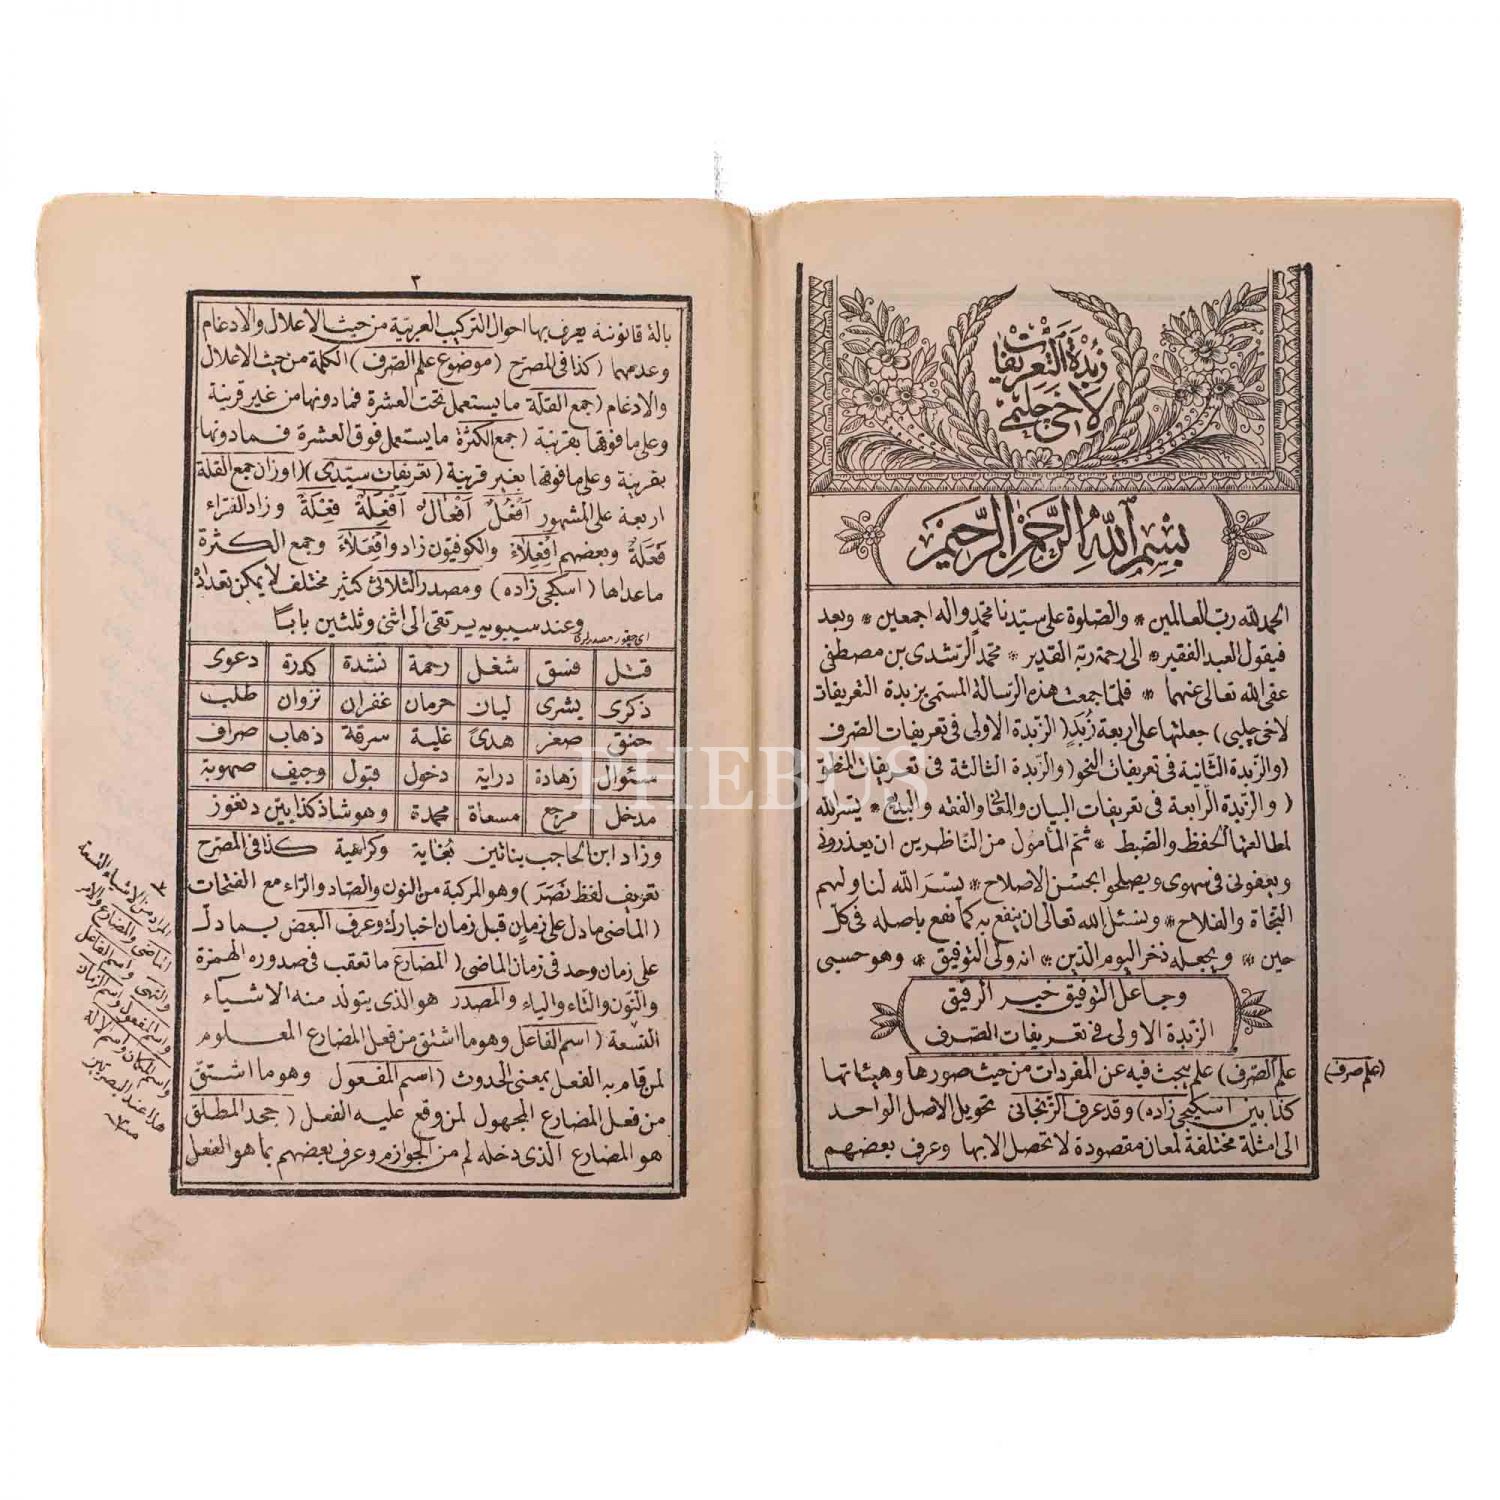 زبدة التعريفات
لاخى چلبى
بسم الله الرحمن الرحيم
الحمد لله رب العالمين * والصلوة على سيدنا محمد واله اجمعين * وبعد
فيقول العبد الفقير * الى رحمة ربه القدير * محمد الرشدى بن مصطفى
عفى الله تعالى عنهما * فلما جمعت هذه الرسالة المسمى بزبدة التعريفات
لاخى چلبى) جعلتها على اربعة زُبَدٍ (الزبدة الاولى فى تعريفات الصرف
(والزبدة الثانية فى تعريفات النحو (والزبدة الثالثة فى تعريفات المنطق
(والزبدة الرابعة فى تعريفات البيان والمعانى والفقه والبديع * يسر الله
لمطالعنها الحفظ والضبط * ثم المأمول من الناظرين ان يعذرونى
ويعفونى فى سهوى ويصلحوا بحسن الاصلاح * يسر الله لنا ولهم
النجاة والفلاح * ونسئل الله تعالى ان ينفع به كما نفع باصله فى كل
حين * ويجعله ذخر اليوم الدين * انه ولى التوفيق * وهو حسبى
وجاعل التوفيق خير الرفيق
الزبدة الاولى فى تعريفات الصرف
علم الصرف) علم يبحث فيه عن المفردات من حيث صورها وهيئاتها
(علم صرف)
كذا بين اسكيجى زاده) وقد عرف الزنجانى تحويل الاصل الواحد
الى امثلة مختلفة لمعان مقصودة لا تحصل الا بها وعرف بعضهم
٣
بالة قانونية يعرف بها احوال التركيب العربية من حيث الاعلال والادغام
وعدمهما (كذا فى المصرح (موضوع علم الصرف) الكلمة من حيث الاعلال
والادغام (جمع القلة ما يستعمل تحت العشرة فما دونها من غير قرينة
وعلى ما فوقها بقرينة (جمع الكثرة ما يستعمل فوق العشرة فما دونها
بقرينة وعلى ما فوقها بغير قرينة (تعريفات سيدى) (اوزان جمع القلة
اربعة على المشهور اَفْعُلٌ اَفْعَالٌ اَفْعِلَةٌ فِعْلَةٌ وزاد الفراء
فَعَلَةٌ وبعضهم اَفْعِلَاءَ والكوفيون زادوا اَفْعَلَاءَ وجمع الكثرة
ما عداها (اسكيجى زاده) ومصدر الثلاثى كثير مختلف لا يمكن تعداده
وعند سيبويه يرتقى الى اثنى وثلثين بابًا
اى جقور مصدرلرى
قتل فسق شغل رحمة نشدة كدرة دعوى
ذكرى بشرى ليان حرمان غفران نزوان طلب
خنق صغر هدىً غلبة سرقة ذهاب صراف
سئوال زهادة دراية دخول قبول وجيف صهوبة
مدخل مرجع مسعاة محمدة وهو شاذ كذا بين دنقوز
وزاد ابن الحاجب بنائين بُغاية وكراهية كذا فى المصرح
تعريف لفظ نَصَرَ) وهو المركبة من النون والصاد والراء مع الفتحات
(الماضى ما دل على زمان قبل زمان اخبارك وعرف البعض بما دل
على زمان وحد فى زمان الماضى (المضارع ما تعقب فى صدوره الهمزة
والنون والتاء والياء والمصدر هو الذى يتولد منه الاشياء
التسعة (اسم الفاعل وهو ما اشتق من فعل المضارع المعلوم
لمن قام به الفعل بمعنى الحدوث (اسم المفعول وهو ما اشتق
من فعل المضارع المجهول لمن وقع عليه الفعل (جحد المطلق
هو المضارع الذى دخله لم من الجوازم وعرف بعضهم بما هو الفعل
المراد من الاشياء التسعة
الماضى والمضارع والامر
والنهى واسم الفاعل
واسم المفعول واسم الزمان
واسم المكان واسم الالة
هذا عند البصريين